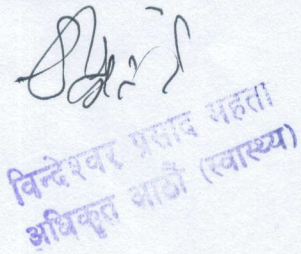 विन्देश्वर प्रसाद महतो
अधिकृत आठौं (स्वास्थ्य)